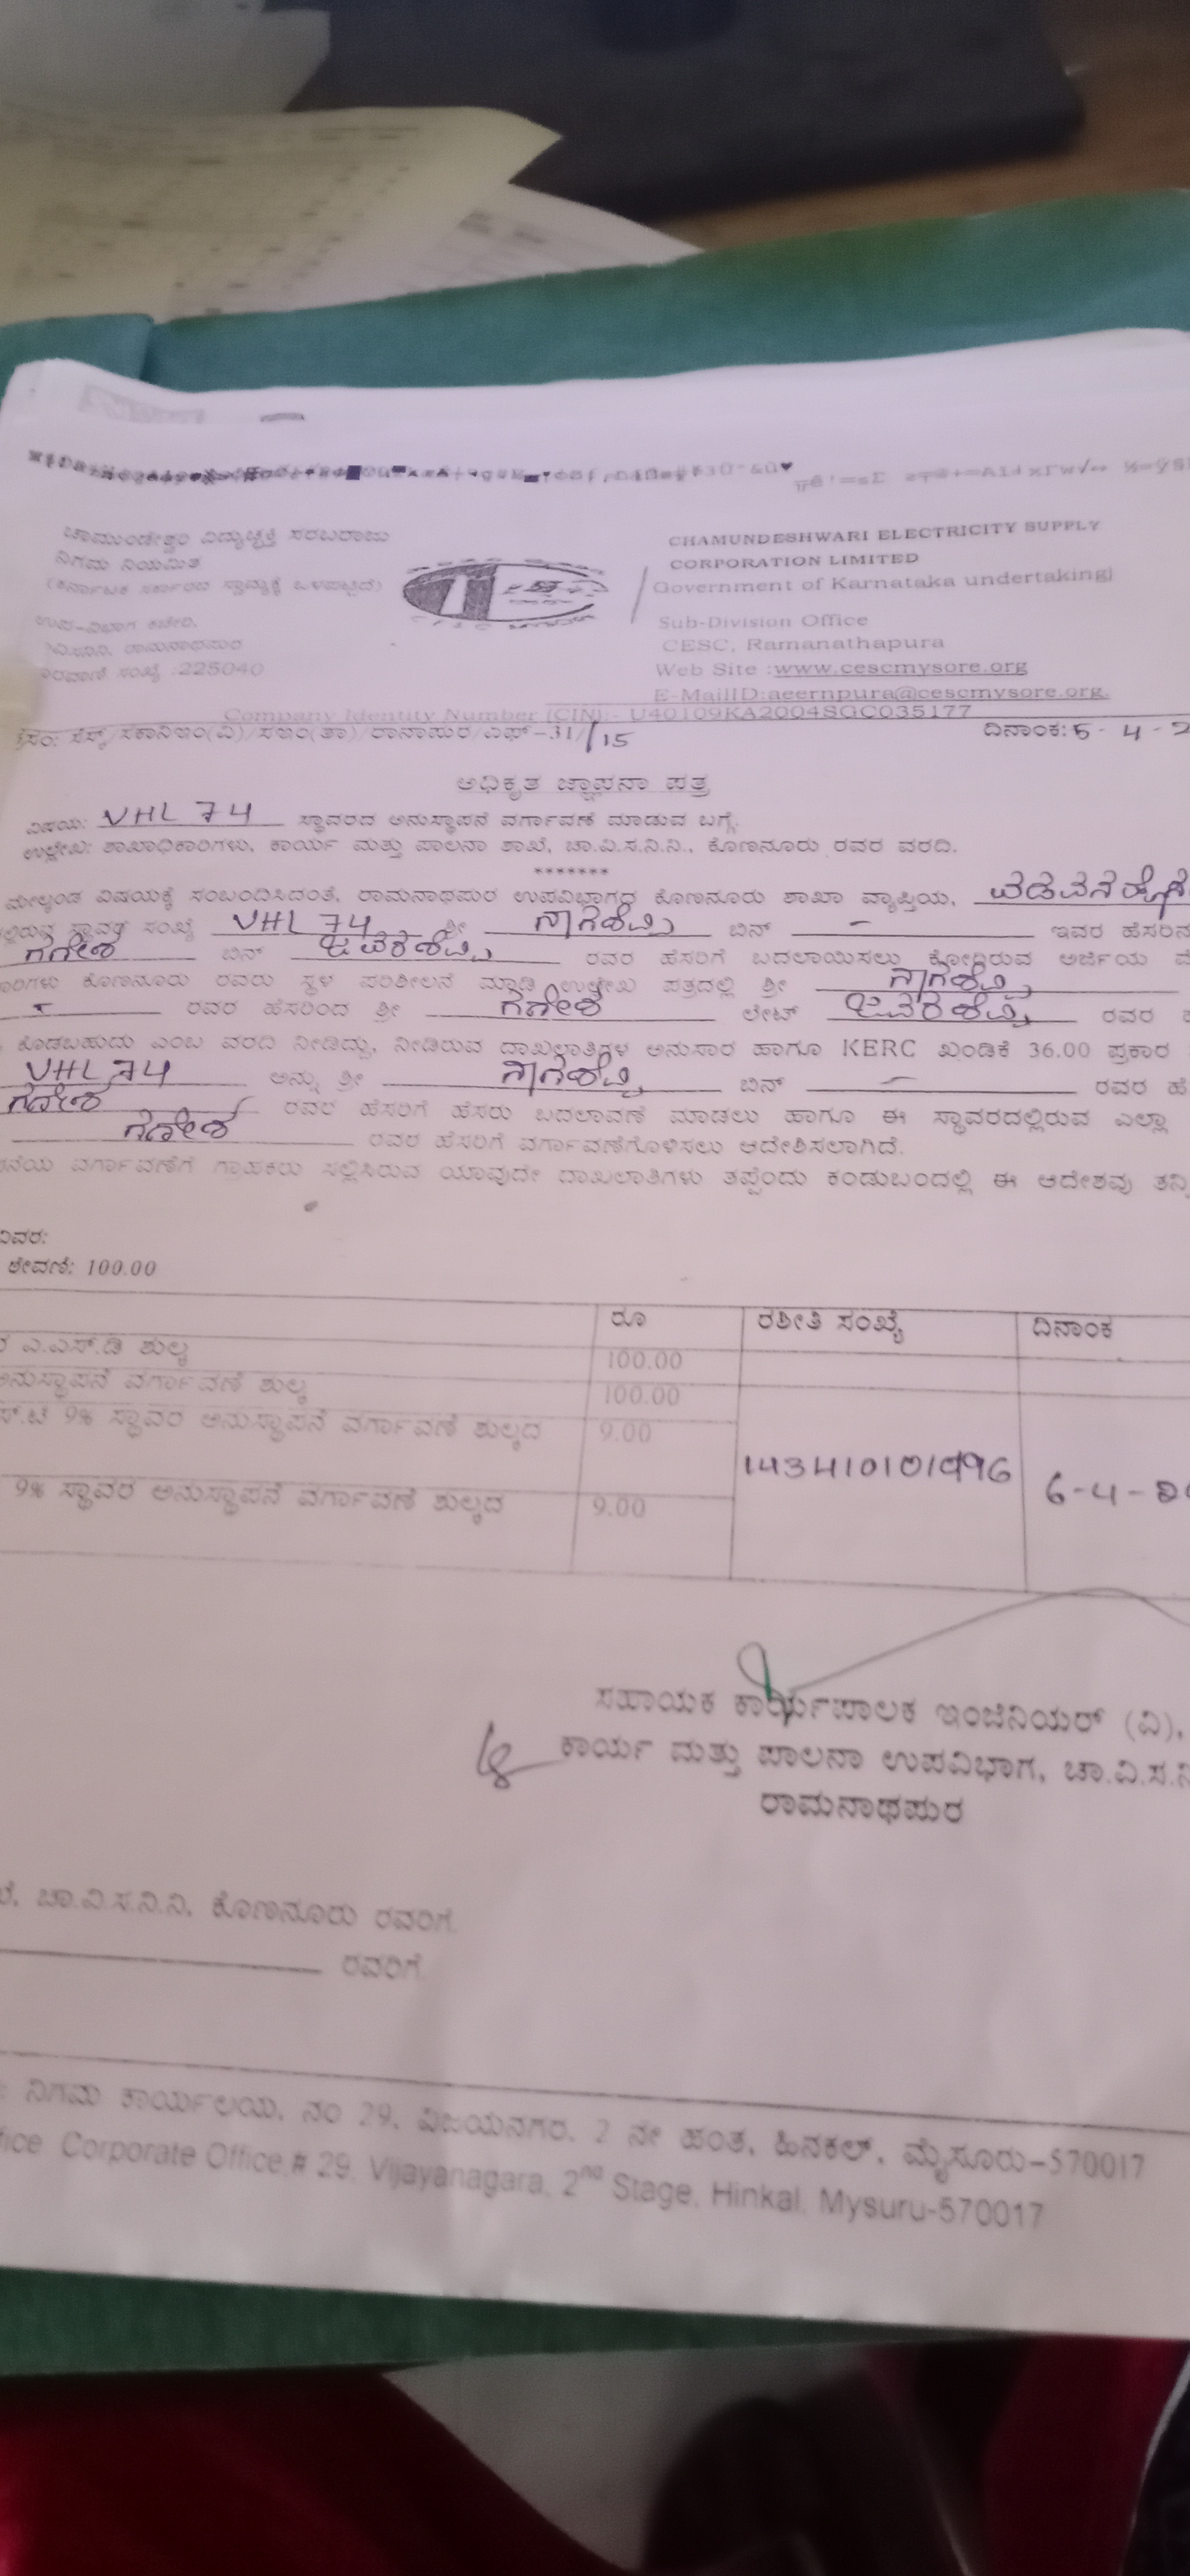 ಚಾಮುಂಡೇಶ್ವರಿ ವಿದ್ಯುಚ್ಛಕ್ತಿ ಸರಬರಾಜು
ನಿಗಮ ನಿಯಮಿತ
(ಕರ್ನಾಟಕ ಸರ್ಕಾರದ ಸ್ವಾಮ್ಯಕ್ಕೆ ಒಳಪಟ್ಟಿದೆ)
ಉಪ-ವಿಭಾಗ ಕಚೇರಿ,
ರಾಮನಾಥಪುರ
ದೂರವಾಣಿ ಸಂಖ್ಯೆ :225040
CHAMUNDESHWARI ELECTRICITY SUPPLY
CORPORATION LIMITED
Government of Karnataka undertaking)
Sub-Division Office
CESC, Ramanathapura
Web Site :www.cescmysore.org
E-MailID:aeernpura@cescmysore.org.
Company Identity Number (CIN):- U40109KA2004SGC035177
/ಸಕಾನಿಇಂ(ವಿ)/ಸಇಂ(ತಾ)/ರಾನಾಪುರ/ಎಫ್-31/15 ದಿನಾಂಕ: 5-4-2
ಅಧಿಕೃತ ಜ್ಞಾಪನಾ ಪತ್ರ
ವಿಷಯ: VHL 74 ಸ್ಥಾವರದ ಅನುಸ್ಥಾಪನೆ ವರ್ಗಾವಣೆ ಮಾಡುವ ಬಗ್ಗೆ.
ಉಲ್ಲೇಖ: ಶಾಖಾಧಿಕಾರಿಗಳು, ಕಾರ್ಯ ಮತ್ತು ಪಾಲನಾ ಶಾಖೆ, ಚಾ.ವಿ.ಸ.ನಿ.ನಿ., ಕೊಣನೂರು ರವರ ವರದಿ.
*******
ಮೇಲ್ಕಂಡ ವಿಷಯಕ್ಕೆ ಸಂಬಂದಿಸಿದಂತೆ, ರಾಮನಾಥಪುರ ಉಪವಿಭಾಗದ ಕೊಣನೂರು ಶಾಖಾ ವ್ಯಾಪ್ತಿಯ,
ಸ್ಥಾವರ ಸಂಖ್ಯೆ VHL 74 ಶ್ರೀ ನಾಗಶೆಟ್ಟಿ ಬಿನ್ – ಇವರ ಹೆಸರಿನ
ಗಣೇಶ ಬಿನ್ ಜವರಶೆಟ್ಟಿ ರವರ ಹೆಸರಿಗೆ ಬದಲಾಯಿಸಲು ಕೋರಿರುವ ಅರ್ಜಿಯ
ಕೊಣನೂರು ರವರು ಸ್ಥಳ ಪರಿಶೀಲನೆ ಮಾಡಿ ಉಲ್ಲೇಖ ಪತ್ರದಲ್ಲಿ ಶ್ರೀ ನಾಗಶೆಟ್ಟಿ
ರವರ ಹೆಸರಿಂದ ಶ್ರೀ ಗಣೇಶ ಲೇಟ್ ಜವರಶೆಟ್ಟಿ ರವರ
ಕೊಡಬಹುದು ಎಂಬ ವರದಿ ನೀಡಿದ್ದು, ನೀಡಿರುವ ದಾಖಲಾತಿಗಳ ಅನುಸಾರ ಹಾಗೂ KERC ಖಂಡಿಕೆ 36.00 ಪ್ರಕಾರ
VHL 74 ಅನ್ನು ಶ್ರೀ ನಾಗಶೆಟ್ಟಿ ಬಿನ್ – ರವರ ಹೆ
ಗಣೇಶ ರವರ ಹೆಸರಿಗೆ ಹೆಸರು ಬದಲಾವಣೆ ಮಾಡಲು ಹಾಗೂ ಈ ಸ್ಥಾವರದಲ್ಲಿರುವ ಎಲ್ಲಾ
ಗಣೇಶ ರವರ ಹೆಸರಿಗೆ ವರ್ಗಾವಣೆಗೊಳಿಸಲು ಆದೇಶಿಸಲಾಗಿದೆ.
ವರ್ಗಾವಣೆಗೆ ಗ್ರಾಹಕರು ಸಲ್ಲಿಸಿರುವ ಯಾವುದೇ ದಾಖಲಾತಿಗಳು ತಪ್ಪೆಂದು ಕಂಡುಬಂದಲ್ಲಿ ಈ ಆದೇಶವು
ವಿವರ:
ಠೇವಣಿ: 100.00
ರೂ ರಶೀತಿ ಸಂಖ್ಯೆ ದಿನಾಂಕ
ಎ.ಎಸ್.ಡಿ ಶುಲ್ಕ 100.00
ಅನುಸ್ಥಾಪನೆ ವರ್ಗಾವಣೆ ಶುಲ್ಕ 100.00
9% ಸ್ಥಾವರ ಅನುಸ್ಥಾಪನೆ ವರ್ಗಾವಣೆ ಶುಲ್ಕದ 9.00
6-4-20
9% ಸ್ಥಾವರ ಅನುಸ್ಥಾಪನೆ ವರ್ಗಾವಣೆ ಶುಲ್ಕದ 9.00
ಸಹಾಯಕ ಕಾರ್ಯಪಾಲಕ ಇಂಜಿನಿಯರ್ (ವಿ),
ಕಾರ್ಯ ಮತ್ತು ಪಾಲನಾ ಉಪವಿಭಾಗ, ಚಾ.ವಿ.ಸ.ನಿ
ರಾಮನಾಥಪುರ
ಚಾ.ವಿ.ಸ.ನಿ.ನಿ, ಕೊಣನೂರು ರವರಿಗೆ.
ರವರಿಗೆ.
ನಿಗಮ ಕಾರ್ಯಾಲಯ, ನಂ 29, ವಿಜಯನಗರ, 2 ನೇ ಹಂತ, ಹಿನಕಲ್, ಮೈಸೂರು-570017
Corporate Office,# 29, Vijayanagara, 2nd Stage, Hinkal, Mysuru-570017